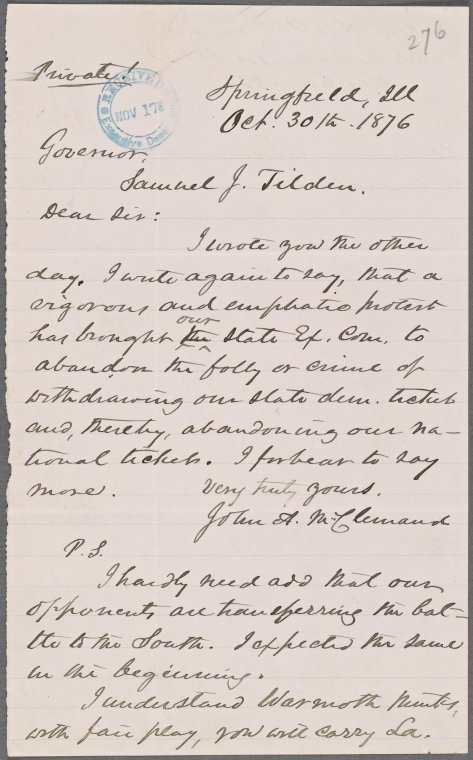 276
Private!
RECEIVED
NOV 17
Executive Dep
Springfield, Ill
Oct. 30th. 1876
Governor,
Samuel J. Tilden.
Dear Sir:
I wrote you the other
day. I write again to say, that a
vigorous and emphatic protest
has brought our State Ex. Com. to
abandon the folly or crime of
withdrawing our state dem. ticket
and, thereby, abandoning our na-
tional ticket. I forbear to say
more. Very truly yours.
John A. McClernand
P.S.
I hardly need add that our
opponents are transferring the bat-
tle to the South. I expected the same
in the beginning.
I understand Warmoth thinks,
with fair play, you will carry La.